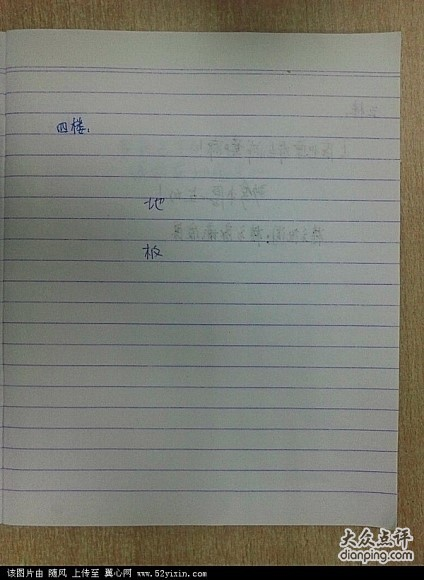 四楼:
地
板
大众点评
dianping.com
该图片由 随风 上传至 翼心网 www.52yixin.com